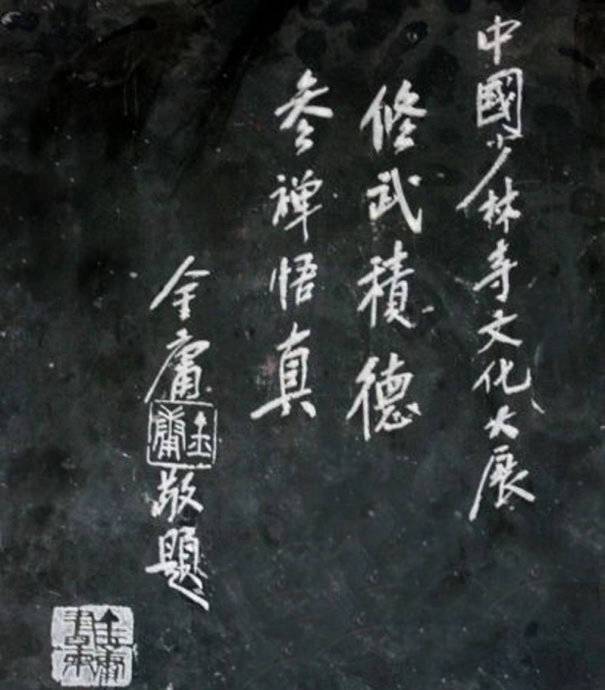 中國少林寺文化大展
修武積德
参禅悟真
金庸
金庸
敬題
金庸